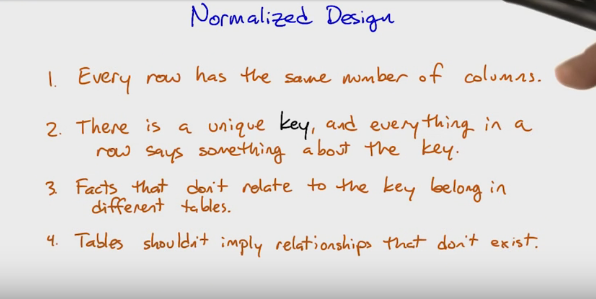 Normalized Design
1. Every row has the same number of columns.
2. There is a unique key, and everything in a
row says something about the key.
3 Facts that don't relate to the key belong in
different tables.
4. Tables shouldn't imply relationships that don't exist.